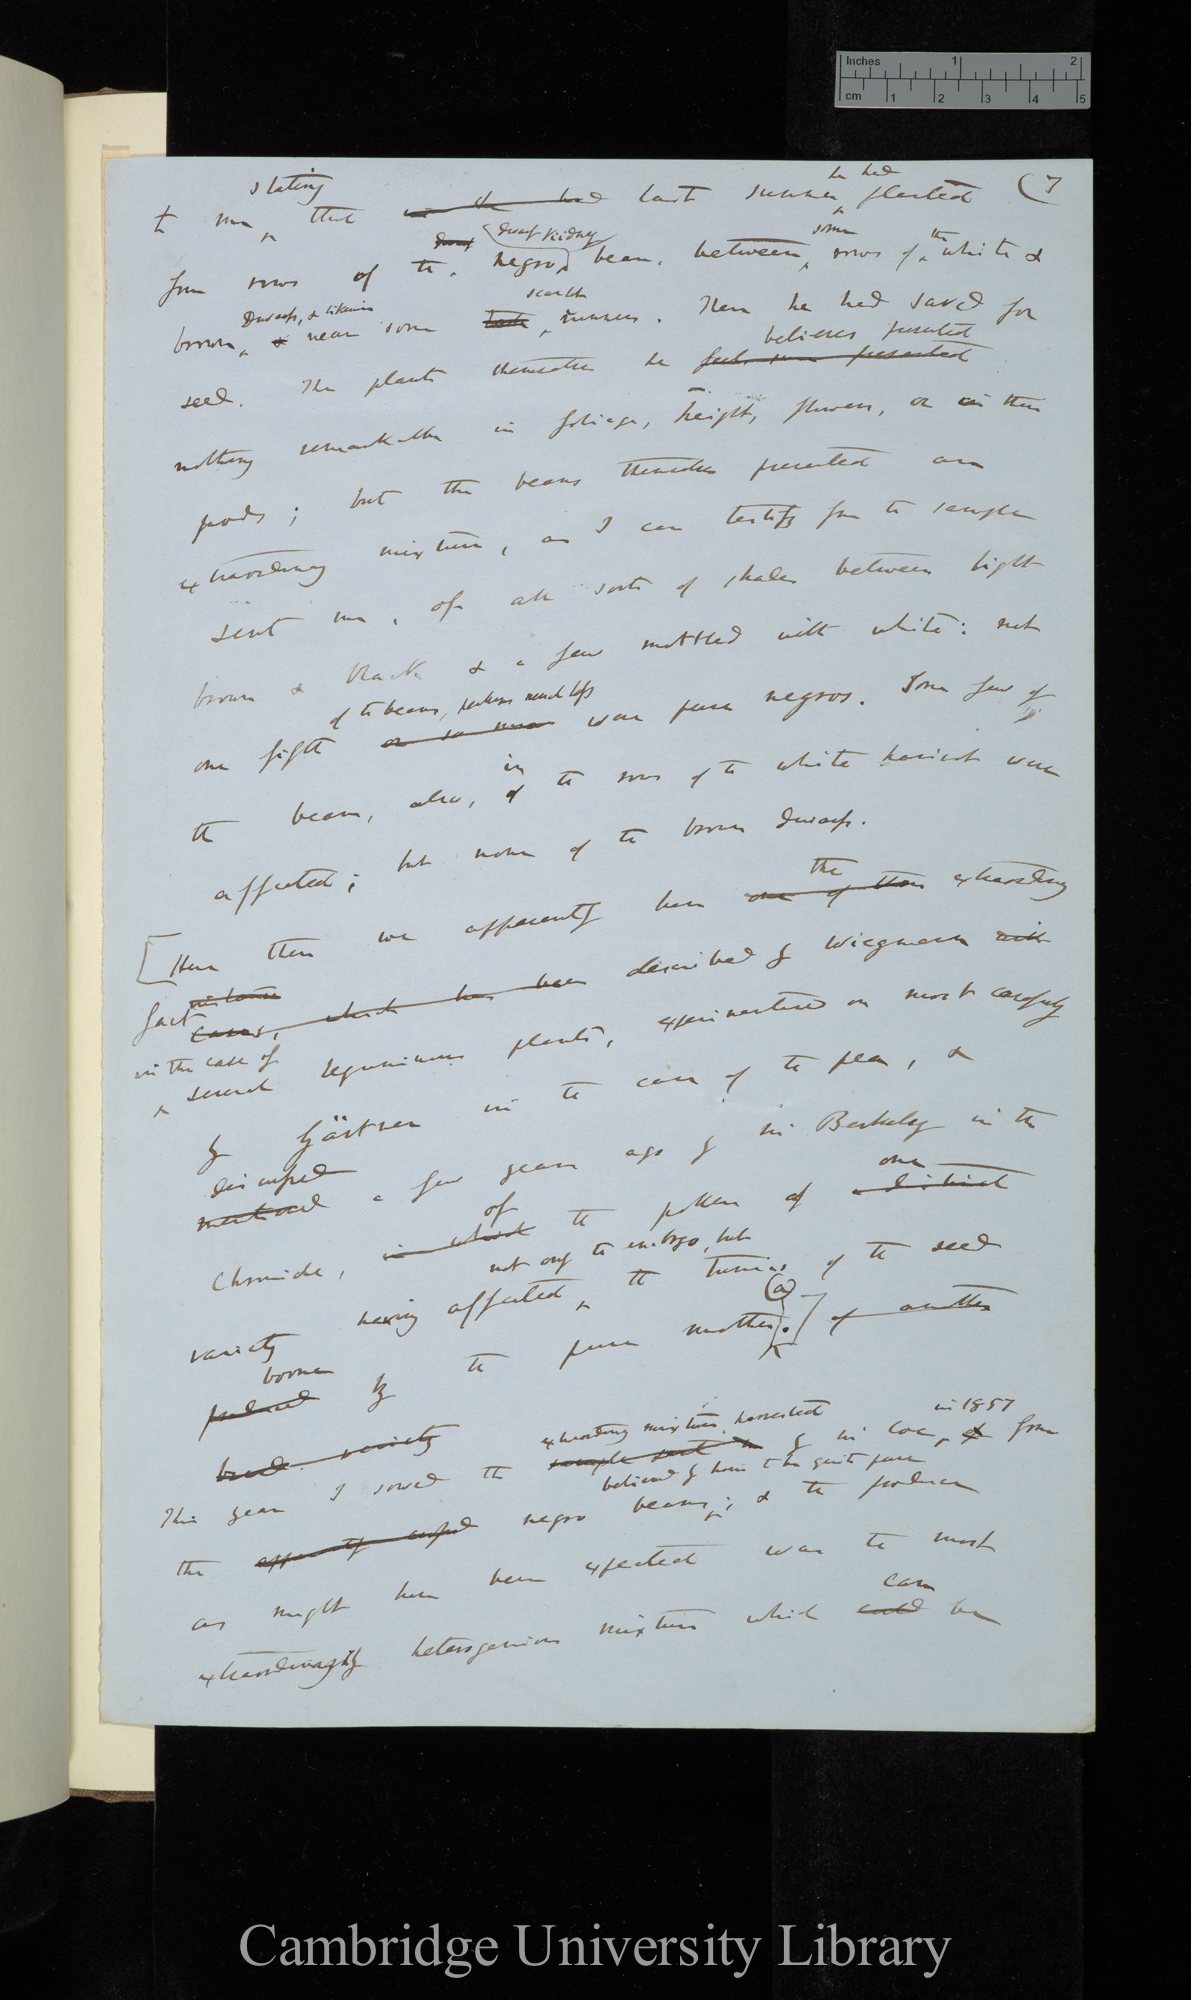 Inches 1 2
cm 1 2 3 4 5
(7
stating he had
to me that last summer planted
dwarf kidney some the
four rows of the negro bean, between rows of white &
Dwarfs, & likewise scarlet
brown, & near some runners. These he had saved for
believes presented
seed. The plants themselves he
nothing remarkable in foliage, height, flowers, or in their
pods; but the beans themselves presented an
extraordinary mixture, as I can testify from the sample
sent me, of all sorts of shades between light
brown & black & a few mottled with white: not
of the beans, perhaps much less
one fifth or so were were pure negros. Some few of
in
the beans, also, of the rows of the white haricot were
affected; but none of the brown dwarfs.
the
[Here then we apparently have one of those extraordinary
instances
fact cases, which has been described by Wiegmann with
in the case of
several leguminous plants, experimentised on most carefully
by Gärtner in the case of the pea, &
discussed
mentioned a few years ago by Mr Berkeley in the
of one
Chronicle, in which the pollen of a distinct
not only the embryo, but
variety having affected, the tunics of the seed
borne (a)
produced by the pure mother.] of another
bean variety
extraordinary mixture, harvested in 1857
This year I sowed the sample sent by Mr Coe, & from
believed by him to be quite pure
the negro beans; & the produce
as might have been expected was the most
can
extraordinarily heterogenious mixture which could be
Cambridge University Library